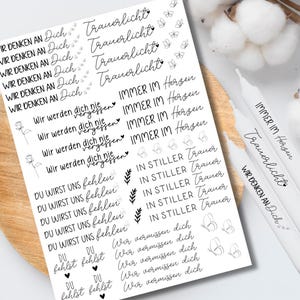 WIR DENKEN AN Dich
WIR DENKEN AN Dich
WIR DENKEN AN Dich
WIR DENKEN AN Dich
WIR DENKEN AN Dich
Trauerlicht
Trauerlicht
Trauerlicht
Trauerlicht
Wir werden dich nie vergessen
Wir werden dich nie vergessen
Wir werden dich nie vergessen
Wir werden dich nie vergessen
IMMER IM Herzen
IMMER IM Herzen
IMMER IM Herzen
IMMER IM Herzen
DU WIRST UNS fehlen
DU WIRST UNS fehlen
DU WIRST UNS fehlen
DU WIRST UNS fehlen
IN STILLER Trauer
IN STILLER Trauer
IN STILLER Trauer
IN STILLER Trauer
DU fehlst
DU fehlst
DU fehlst
DU fehlst
Wir vermissen dich
Wir vermissen dich
Wir vermissen dich
Wir vermissen dich
IMMER IM Herzen
Trauerlicht
WIR DENKEN AN Dich